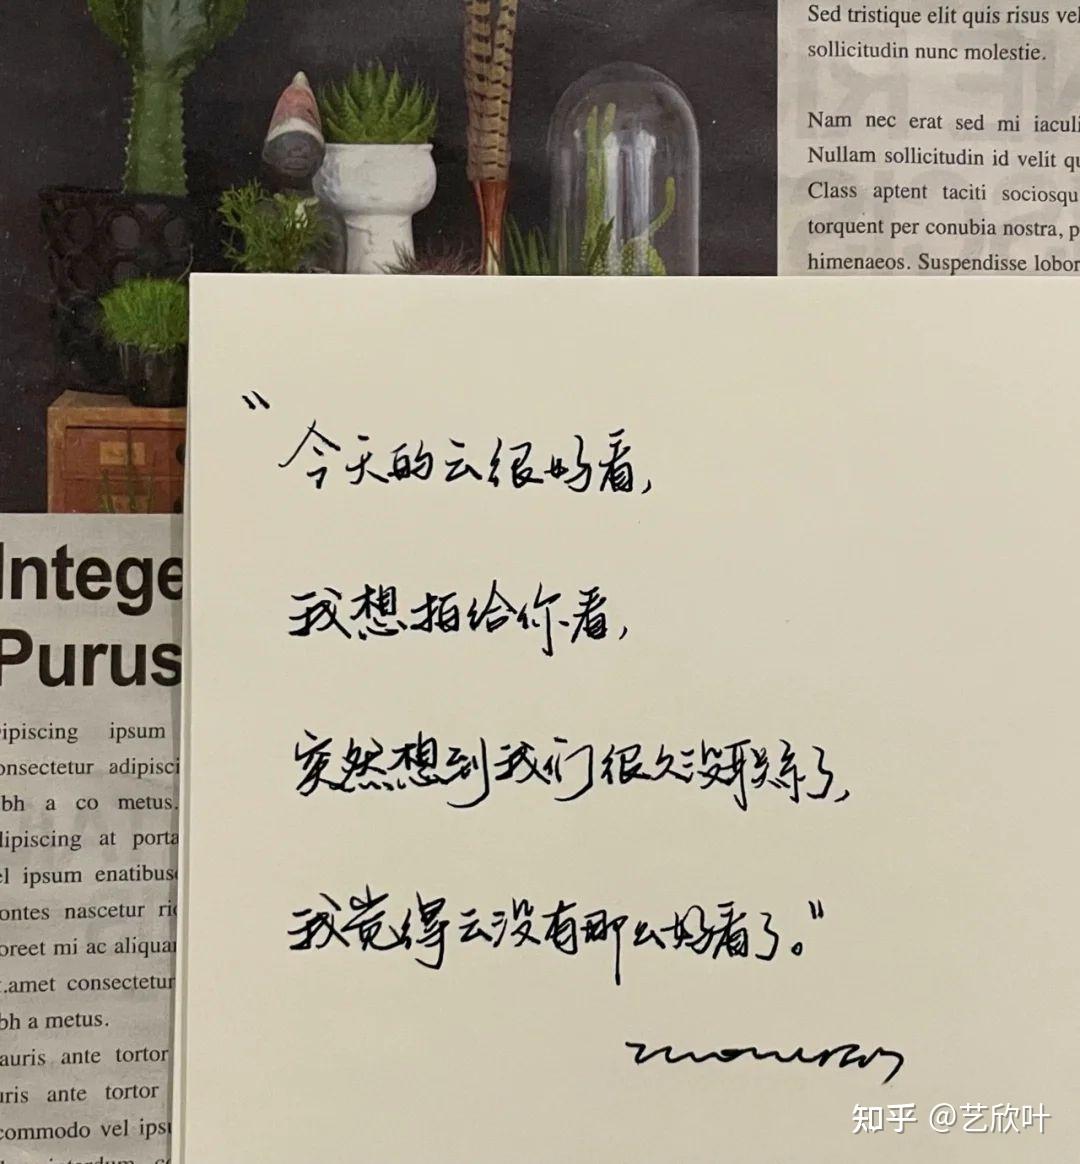 Sed tristique elit quis risus vel
sollicitudin nunc molestie.
Nam nec erat sed mi iaculi
Nullam sollicitudin id velit qu
Class aptent taciti sociosqu
torquent per conubia nostra, p
himenaeos. Suspendisse lobor
"今天的云很好看,
我想拍给你看,
突然想到我们很久没联系了,
我觉得云没有那么好看了。"
Intege
Purus
ipiscing ipsum
onsectetur adipisci
bh a co metus.
lipiscing at porta
el ipsum enatibus
ontes nascetur ri
oreet mi ac aliquam
.amet consectetur
bh a metus.
auris ante tortor
uris ante tortor
commodo vel ipsu
知乎 @艺欣叶